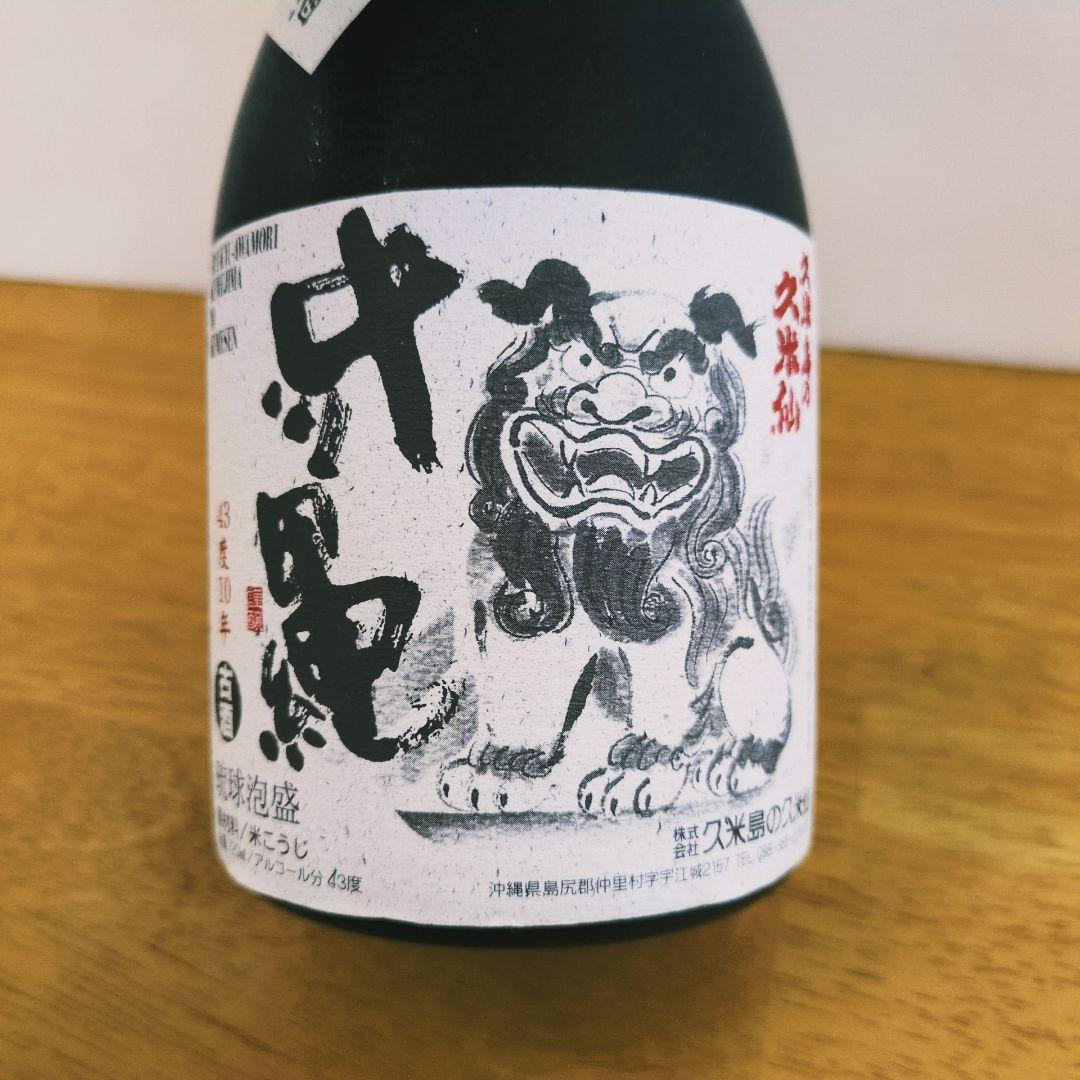 沖縄
久米島の
久米仙
43度10年
謹醸
古酒
琉球泡盛
/米こうじ
/アルコール分43度
株式会社 久米島の久米仙
沖縄県島尻郡仲里村字宇江城2157 TEL.098